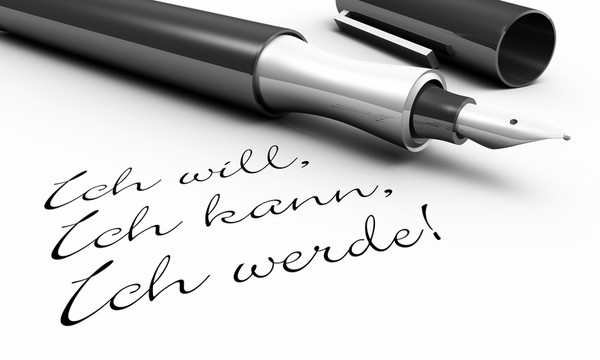 Ich will,
Ich kann,
Ich werde!